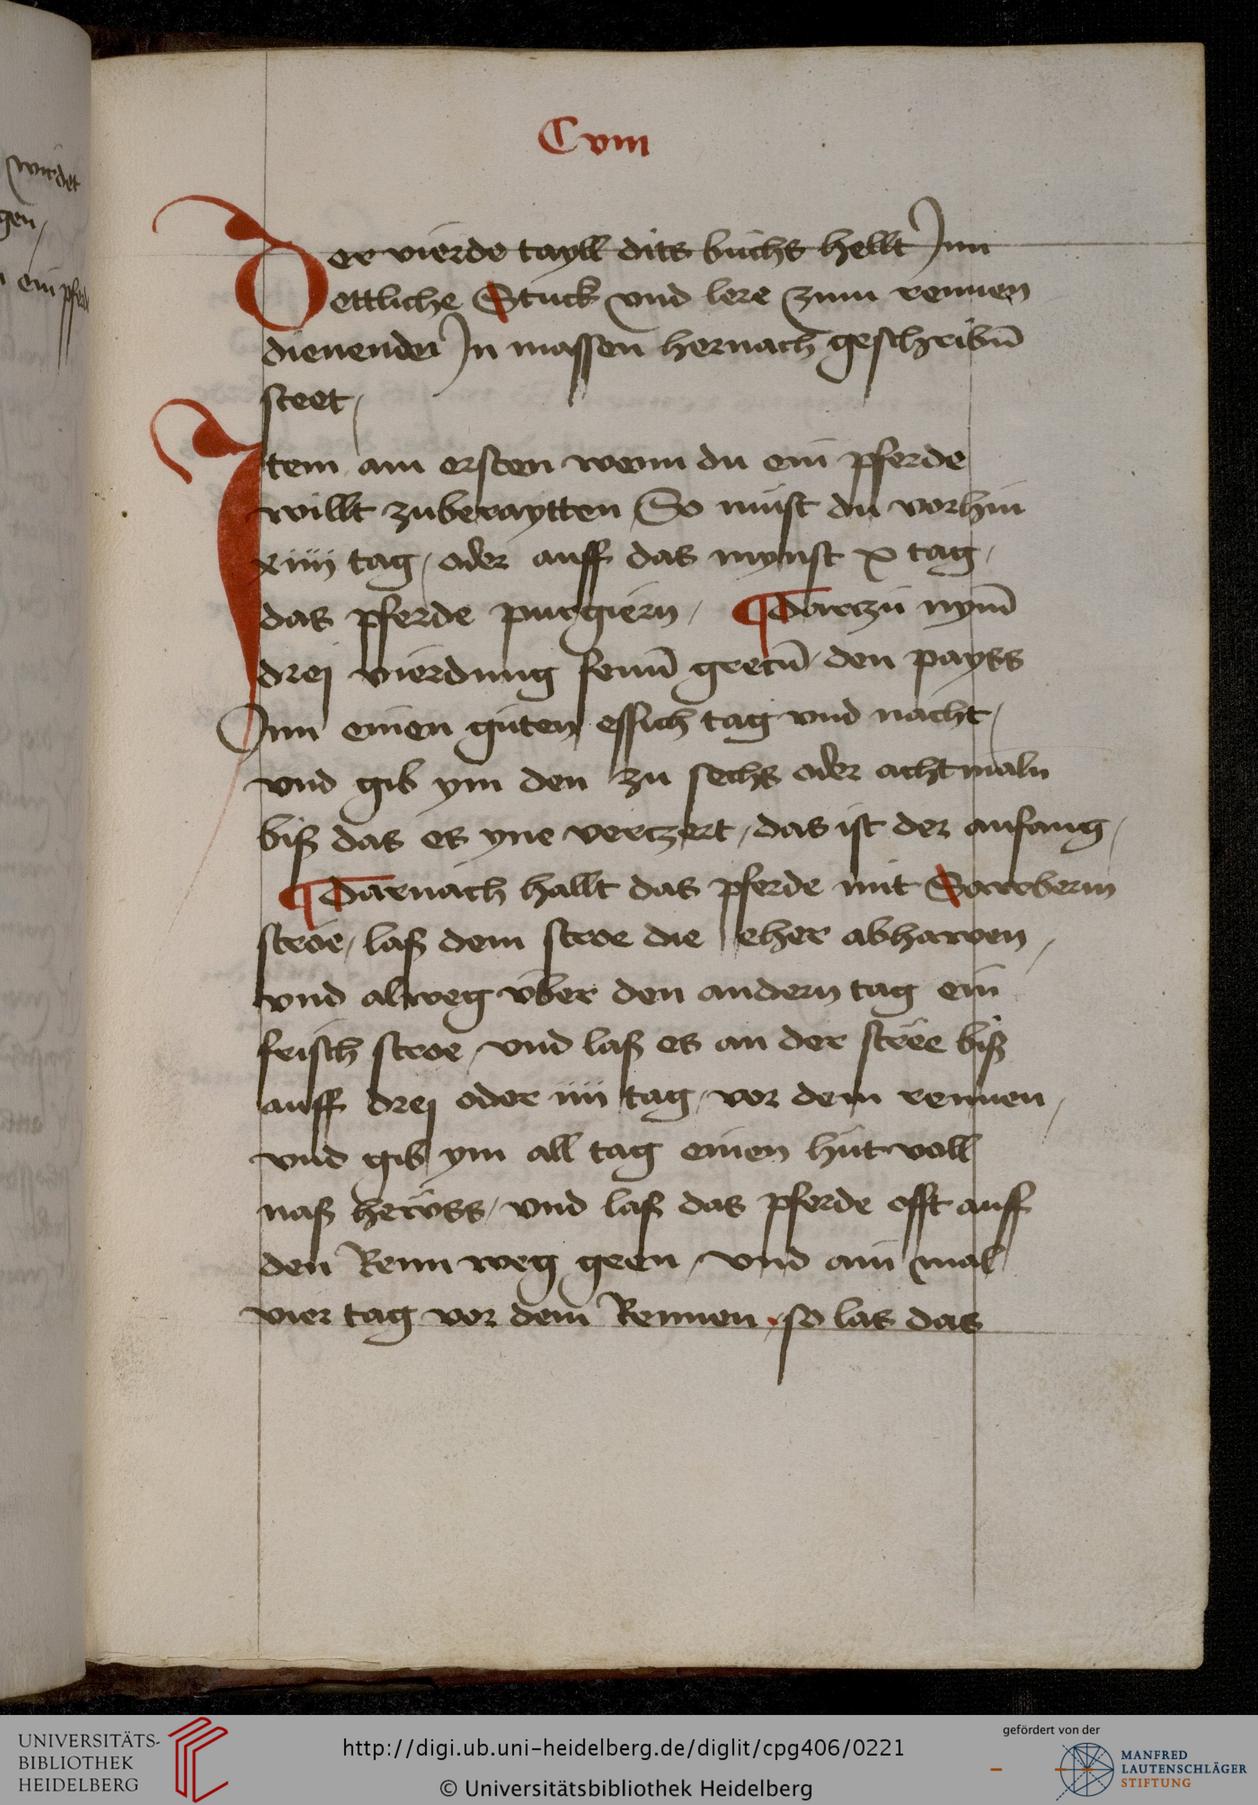 wirdet
gen /
ein pferd
C viii
Der vierde tayll dits buchs hellt Jnn
ettliche Stuck vnd lere zum rennen
dienendei Jn massen hernach geschribn̄
steet /
Jtem am ersten wenn du ein pferde
willt zuberaytten So must du vorhin
xiiii tag / oder auff das mynst x tag /
das pferde purgiern / ¶ Darczu nym̄
drej vierdung fenū grecū den payss
Jnn einen guten essich tag vnd nacht /
vnd gib ym den zu sechs oder acht maln
biß das es yne verczert / das ist der anfang /
¶ Darnach hallt das pferde mit
stroe / laß dem stroe die eher abhawen /
vnd alweg vber den andern tag ein
frisch stroe / vnd laß es an der stree biß
auff drej oder iiii tag / vor dem rennen /
vnd gib ym all tag einen hut voll
naß hewss / vnd laß das pferde offt auff
den Renn weg geen / vnd ain mal
vier tag vor dem Rennen / so las das
UNIVERSITÄTS-
BIBLIOTHEK
HEIDELBERG
http://digi.ub.uni-heidelberg.de/diglit/cpg406/0221
© Universitätsbibliothek Heidelberg
gefördert von der
MANFRED
LAUTENSCHLÄGER
STIFTUNG